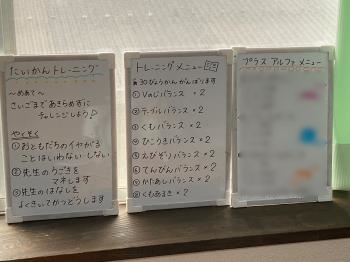 たいかんトレーニング
〜めあて〜
さいごまであきらめずに
チャレンジしよう♪
やくそく
①おともだちのイヤがる
ことはいわない・しない
②先生のうごきを
マネします
③先生のはなしを
よくきいてかつどうします
トレーニングメニュー
※30びょうかんがんばります
①Vのじバランス×2
②テーブルバランス×2
③くもバランス×2
④ひこうきバランス×2
⑤えびぞりバランス×2
⑥てんびんバランス×2
⑦かたあしバランス×2
⑧くもあるき×2
プラスアルファメニュー